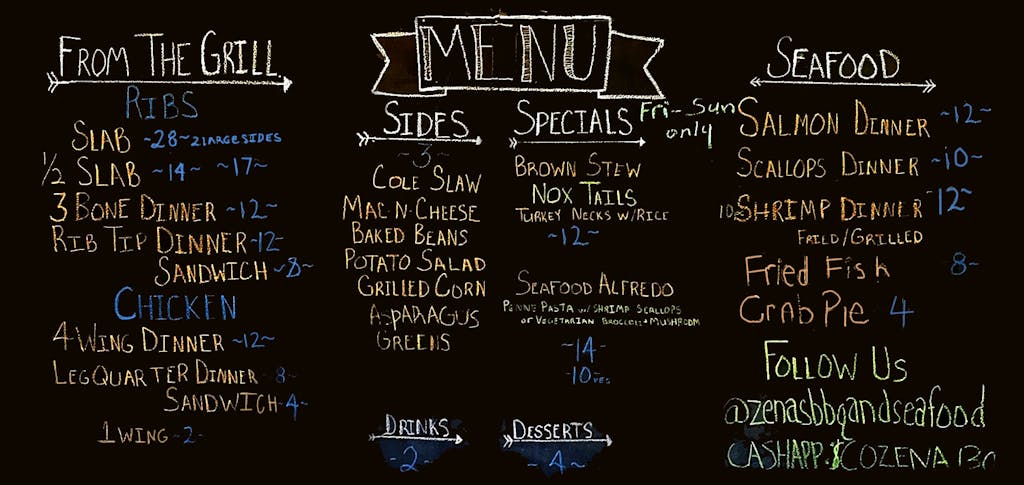 MENU
FROM THE GRILL
RIBS
SLAB ~28~ 2 LARGE SIDES
1/2 SLAB ~14~ ~17~
3 BONE DINNER ~12~
RIB TIP DINNER ~12~
SANDWICH ~8~
CHICKEN
4 WING DINNER ~12~
LEG QUARTER DINNER 8~
SANDWICH 4~
1 WING ~2~
SIDES
~3~
COLE SLAW
MAC-N-CHEESE
BAKED BEANS
POTATO SALAD
GRILLED CORN
ASPARAGUS
GREENS
DRINKS
~2~
SPECIALS Fri-Sun only
BROWN STEW
NOX TAILS
TURKEY NECKS W/RICE
~12~
SEAFOOD ALFREDO
PENNE PASTA w/ SHRIMP SCALLOPS
or VEGETARIAN BROCCOLI + MUSHROOM
~14~
~10 VEG
DESSERTS
~4~
SEAFOOD
SALMON DINNER ~12~
SCALLOPS DINNER ~10~
SHRIMP DINNER ~12~
FRIED/GRILLED
Fried Fish 8~
Crab Pie 4
FOLLOW US
@zenasbbqandseafood
CASHAPP $COZENA130